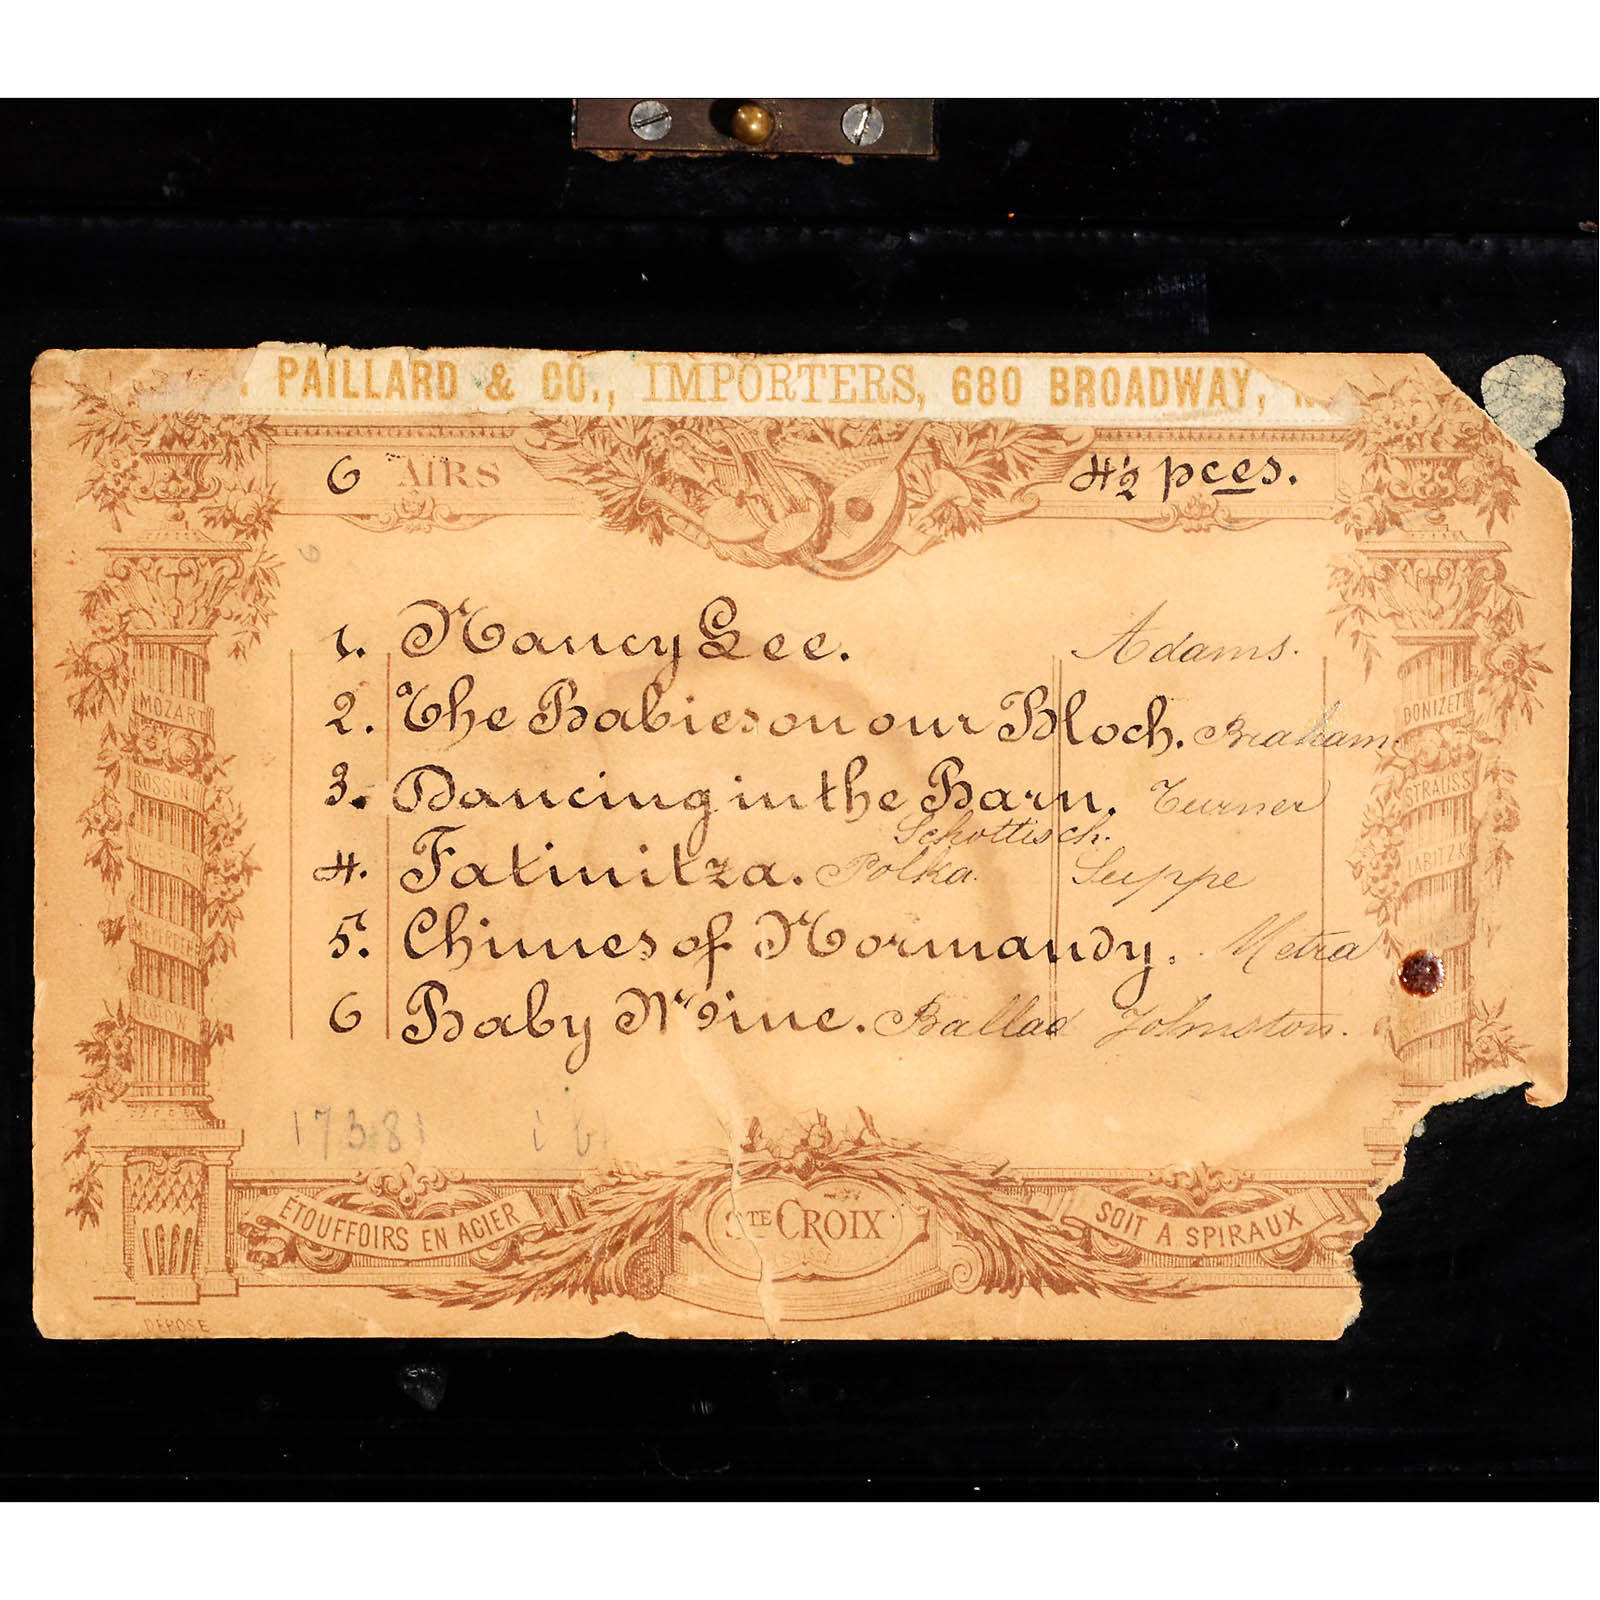 PAILLARD & CO., IMPORTERS, 680 BROADWAY,
6 AIRS 4½ pces.
1. Nancy Lee. Adams.
2. The Babies on our Bloch. Braham
3. Dancing in the Barn. Turner
Schottisch.
4. Fatinitza. Polka. Suppe
5. Chimes of Normandy. Metra
6 Baby Mine. Ballad Johnston.
MOZART
ROSSINI
AUBER
MEYERBEER
FLOTOW
DONIZETTI
STRAUSS
LABITZK
17381
ETOUFFOIRS EN ACIER
STE CROIX
SOIT A SPIRAUX
DEPOSE